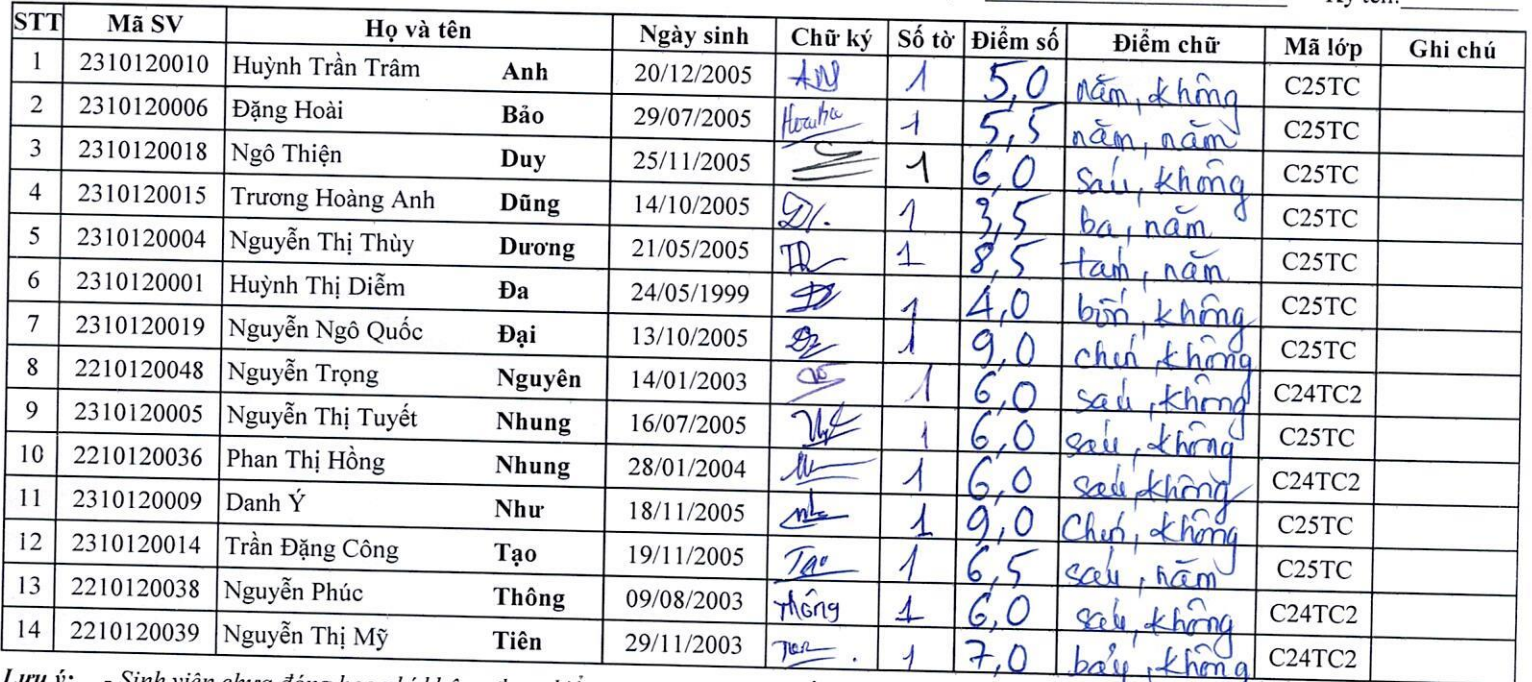 Ký tên:
STT Mã SV Họ và tên Ngày sinh Chữ ký Số tờ Điểm số Điểm chữ Mã lớp Ghi chú
1 2310120010 Huỳnh Trần Trâm Anh 20/12/2005 1 5,0 năm, không C25TC
2 2310120006 Đặng Hoài Bảo 29/07/2005 1 5,5 năm, năm C25TC
3 2310120018 Ngô Thiện Duy 25/11/2005 1 6,0 sáu, không C25TC
4 2310120015 Trương Hoàng Anh Dũng 14/10/2005 1 3,5 ba, năm C25TC
5 2310120004 Nguyễn Thị Thùy Dương 21/05/2005 1 8,5 tám, năm C25TC
6 2310120001 Huỳnh Thị Diễm Đa 24/05/1999 1 4,0 bốn, không C25TC
7 2310120019 Nguyễn Ngô Quốc Đại 13/10/2005 1 9,0 chín, không C25TC
8 2210120048 Nguyễn Trọng Nguyên 14/01/2003 1 6,0 sáu, không C24TC2
9 2310120005 Nguyễn Thị Tuyết Nhung 16/07/2005 1 6,0 sáu, không C25TC
10 2210120036 Phan Thị Hồng Nhung 28/01/2004 1 6,0 sáu, không C24TC2
11 2310120009 Danh Ý Như 18/11/2005 1 9,0 Chín, không C25TC
12 2310120014 Trần Đặng Công Tạo 19/11/2005 Tạo 1 6,5 sáu, năm C25TC
13 2210120038 Nguyễn Phúc Thông 09/08/2003 Thông 1 6,0 sáu, không C24TC2
14 2210120039 Nguyễn Thị Mỹ Tiên 29/11/2003 1 7,0 bảy, không C24TC2
Lưu ý: - Sinh viên chưa đóng học phí không